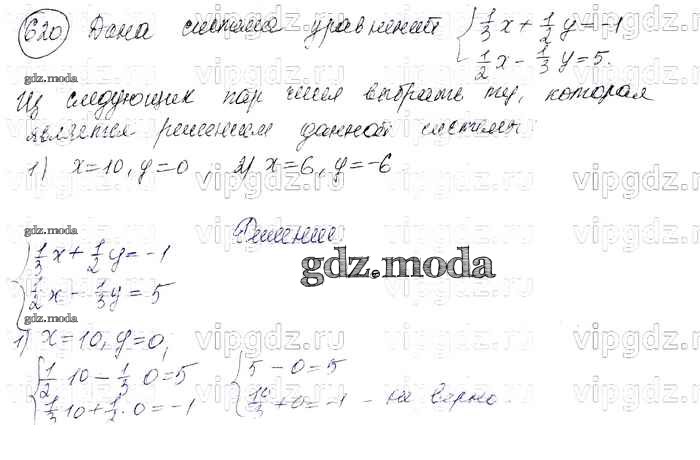 620 Дана система уравнений { 1/3 x + 1/2 y = -1
1/2 x - 1/3 y = 5.
gdz.moda
Из следующих пар чисел выбрать ту, которая
является решением данной системы
1) x=10, y=0, 2) x=6, y=-6
gdz.moda Решение.
{ 1/3 x + 1/2 y = -1
1/2 x - 1/3 y = 5
gdz.moda
1) x=10, y=0,
{ 1/2 10 - 1/3 0 = 5 { 5 - 0 = 5
1/3 10 + 1/2 · 0 = -1 10/3 + 0 = -1 - не верно.
vipgdz.ru